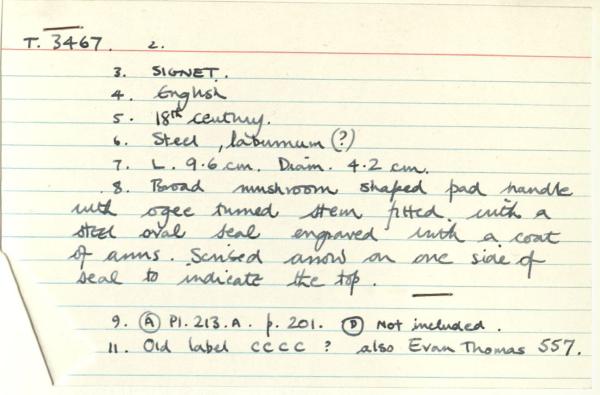 T. 3467. 2.
3. SIGNET.
4. English
5. 18th century.
6. Steel, laburnum (?)
7. L. 9.6 cm. Diam. 4.2 cm.
8. Broad mushroom shaped pad handle
with ogee turned stem fitted with a
steel oval seal engraved with a coat
of arms. Scribed arrow on one side of
seal to indicate the top.
9. (A) Pl. 213. A. p. 201. (D) Not included.
11. Old label CCCC ? also Evan Thomas 557.